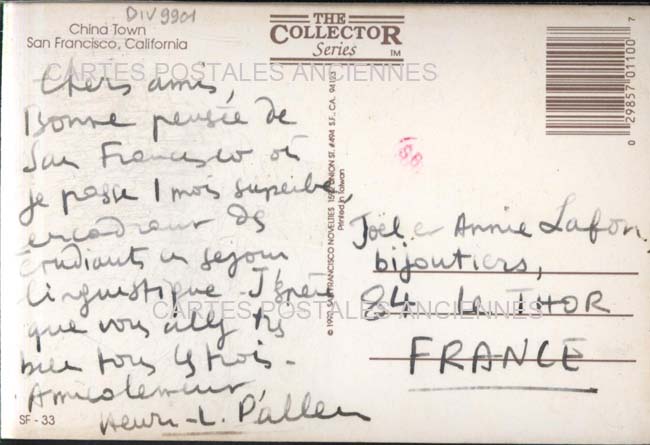 DIV9901
China Town
San Francisco, California
THE
COLLECTOR
Series
TM
CARTES POSTALES ANCIENNES
Chers amis,
Bonne pensée de
San Francisco où
je passe 1 mois superbe,
encadreur des
étudiants en séjour
linguistique. J'espère
que vous allez très
bien tous les trois.
Amicalement,
Henri-L.
SF - 33
© 1990, SAN FRANCISCO NOVELTIES #494 S.F., CA. 94103
Printed in Taiwan
Joël et Annie Lafon,
bijoutiers,
84 LE THOR
FRANCE
CARTES POSTALES ANCIENNES
0 29857 01100 7